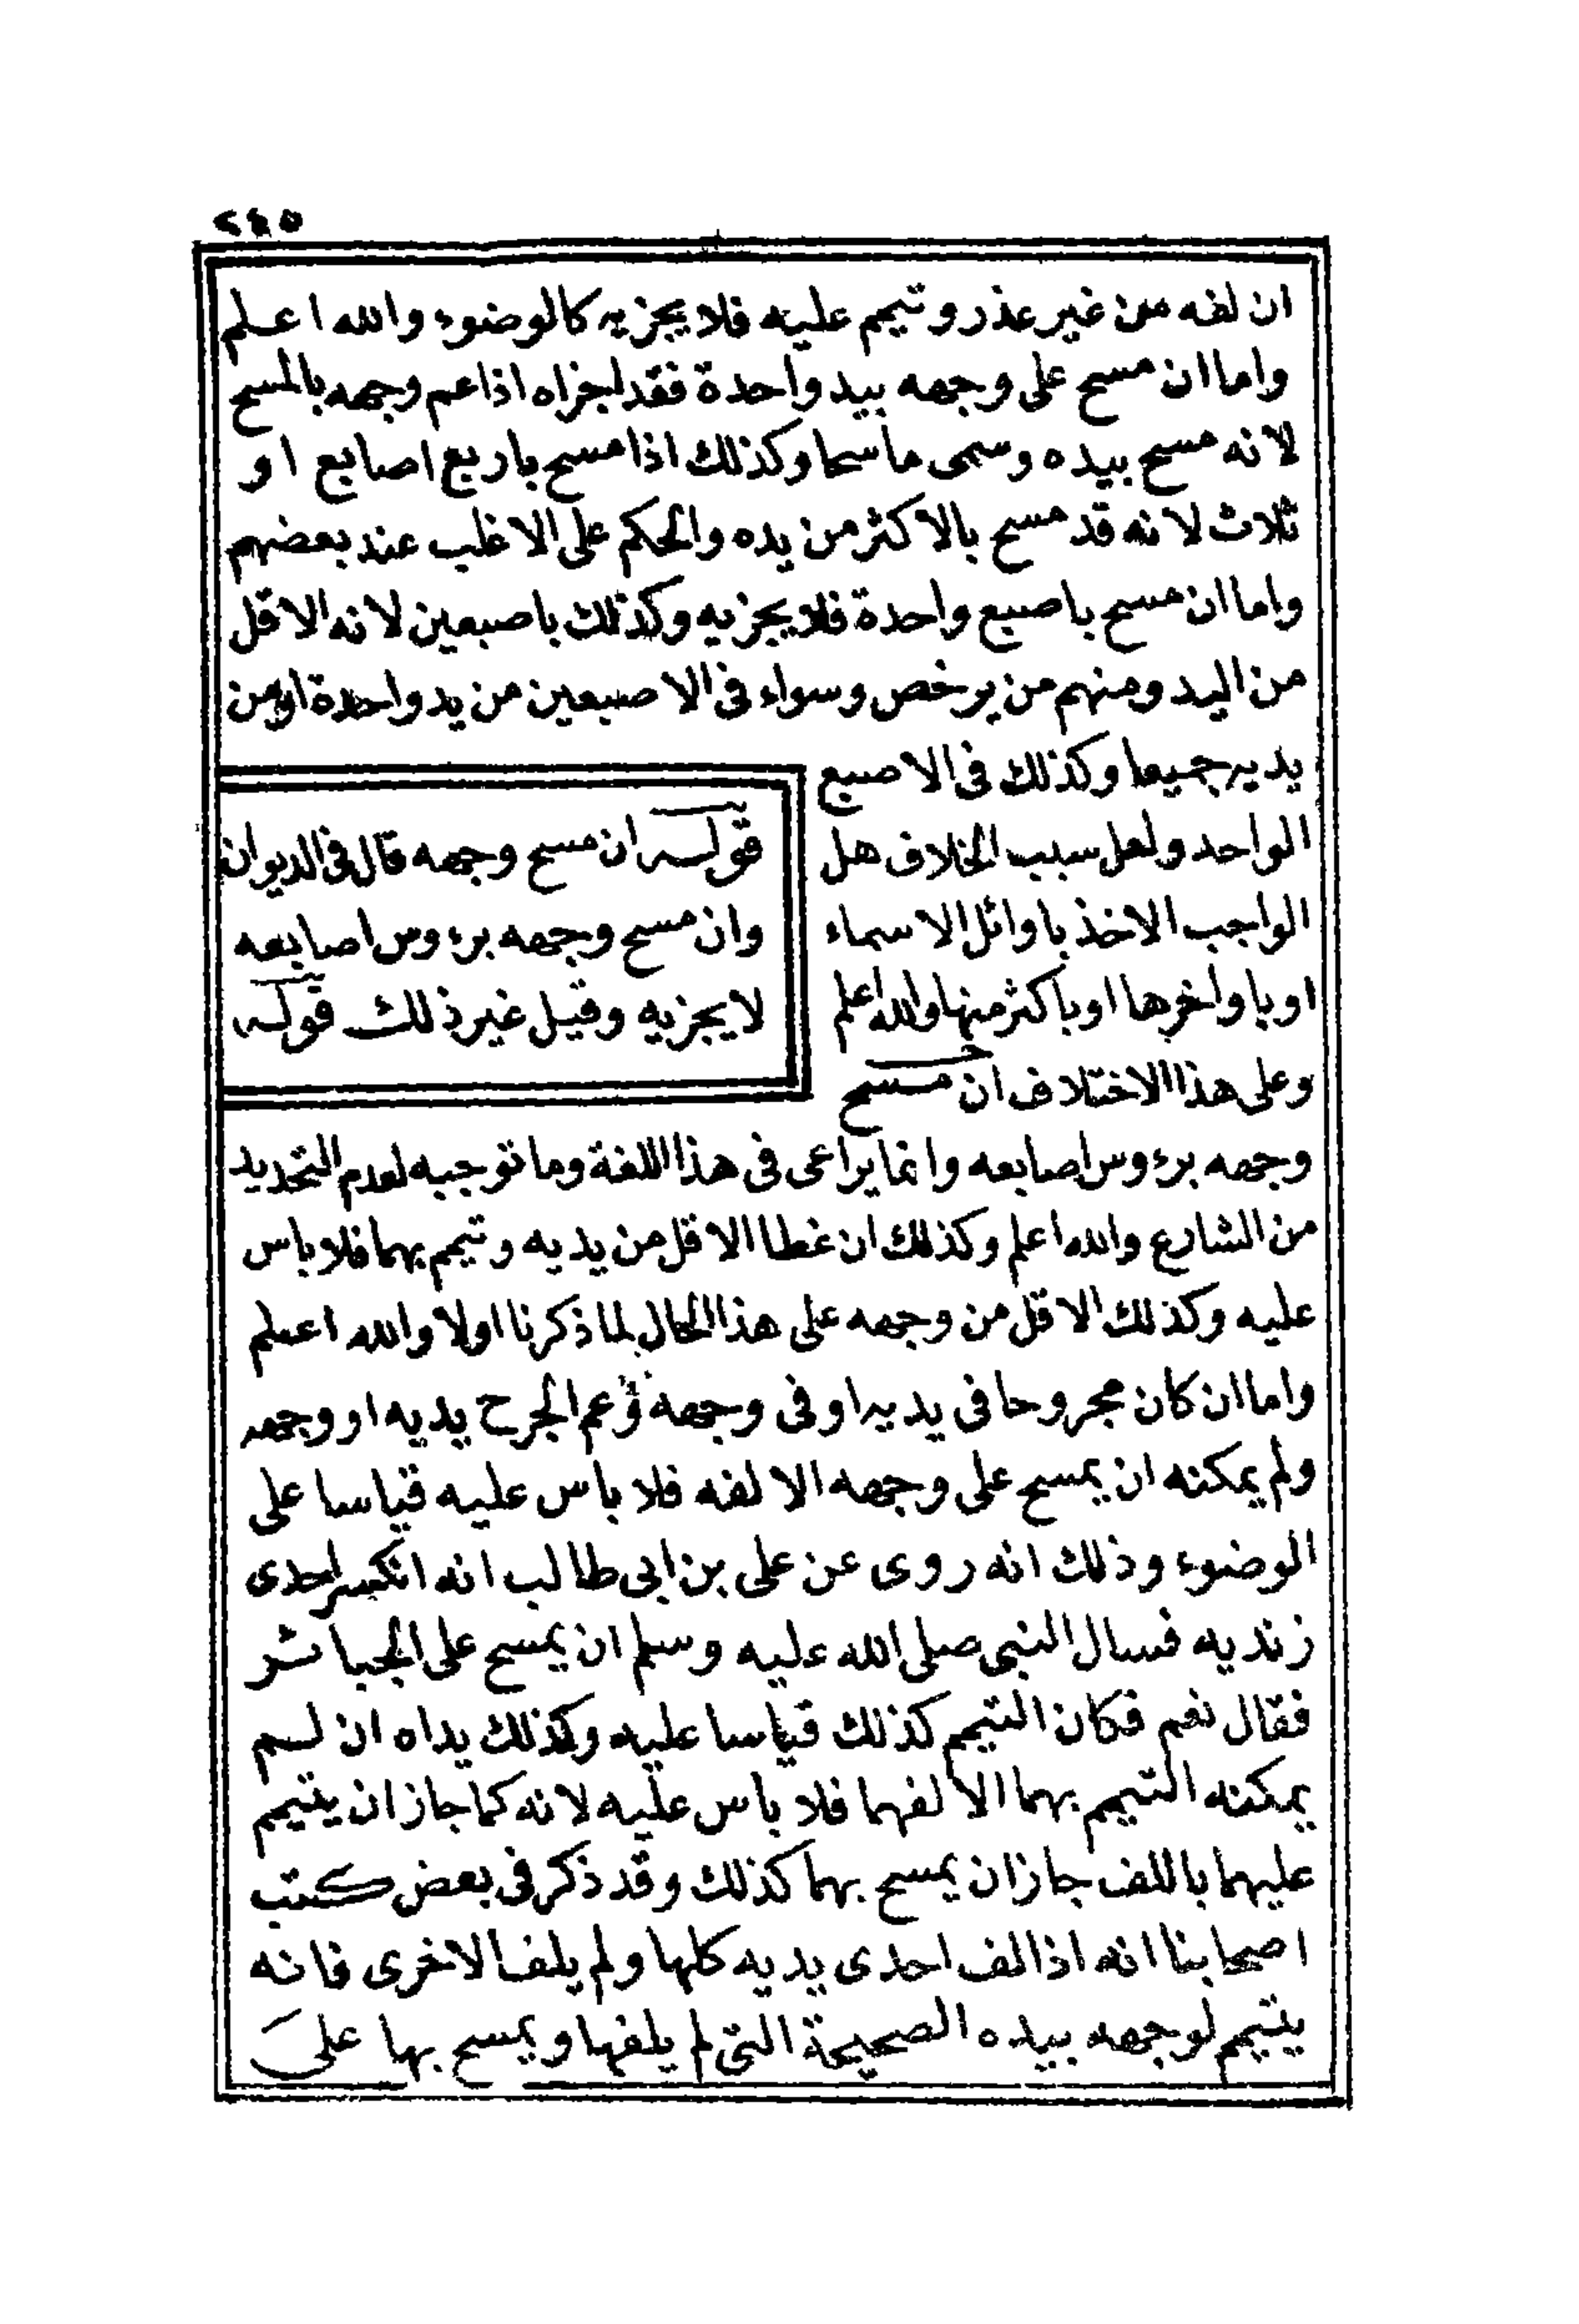 ٢٤٥
ان لفه من غير عذر وتيمم عليه فلا يجزيه كالوضوء والله اعلم
واما ان مسح على وجهه بيد واحدة فقد اجزاه اذا عم وجهه بالمسح
لانه مسح بيده وسمى ماسحا وكذلك اذا مسح باربع اصابع او
ثلاث لانه قد مسح بالاكثر من يده والحكم على الاغلب عند بعضهم
واما ان مسح باصبع واحدة فلا يجزيه وكذلك باصبعين لانه الاقل
من اليد ومنهم من يرخص وسواء فى الاصبعين من يد واحدة او من
يديه جميعا وكذلك فى الاصبع
الواحد ولعل سبب الخلاف هل
الواجب الاخذ باوائل الاسماء
او باواخرها او باكثر منها والله اعلم
وعلى هذا الاختلاف ان مسح
وجهه برءوس اصابعه وانما يراعى فى هذا اللغة وما توجبه لعدم التحديد
من الشارع والله اعلم وكذلك ان غطا الاقل من يديه وتيمم بهما فلا باس
عليه وكذلك الاقل من وجهه على هذا الحال لما ذكرنا اولا والله اعلم
واما ان كان مجروحا فى يديه او فى وجهه وعم الجرح يديه او وجهه
ولم يمكنه ان يمسح على وجهه الا لفه فلا باس عليه قياسا على
الوضوء وذلك انه روى عن على بن ابى طالب انه انكسر احدى
زنديه فسال النبى صلى الله عليه وسلم ان يمسح على الجبائر
فقال نعم فكان التيمم كذلك قياسا عليه وكذلك يداه ان لم
يمكنه التيمم بهما الا لفهما فلا باس عليه لانه كما جاز ان يتيمم
عليهما باللف جاز ان يمسح بهما كذلك وقد ذكر فى بعض كتب
اصحابنا انه اذا لف احدى يديه كلها ولم يلف الاخرى فانه
يتيمم لوجهه بيده الصحيحة التى لم يلفها ويمسح بها على
قوله ان مسح وجهه قال فى الديوان
وان مسح وجهه برءوس اصابعه
لا يجزيه وقيل غير ذلك قوله